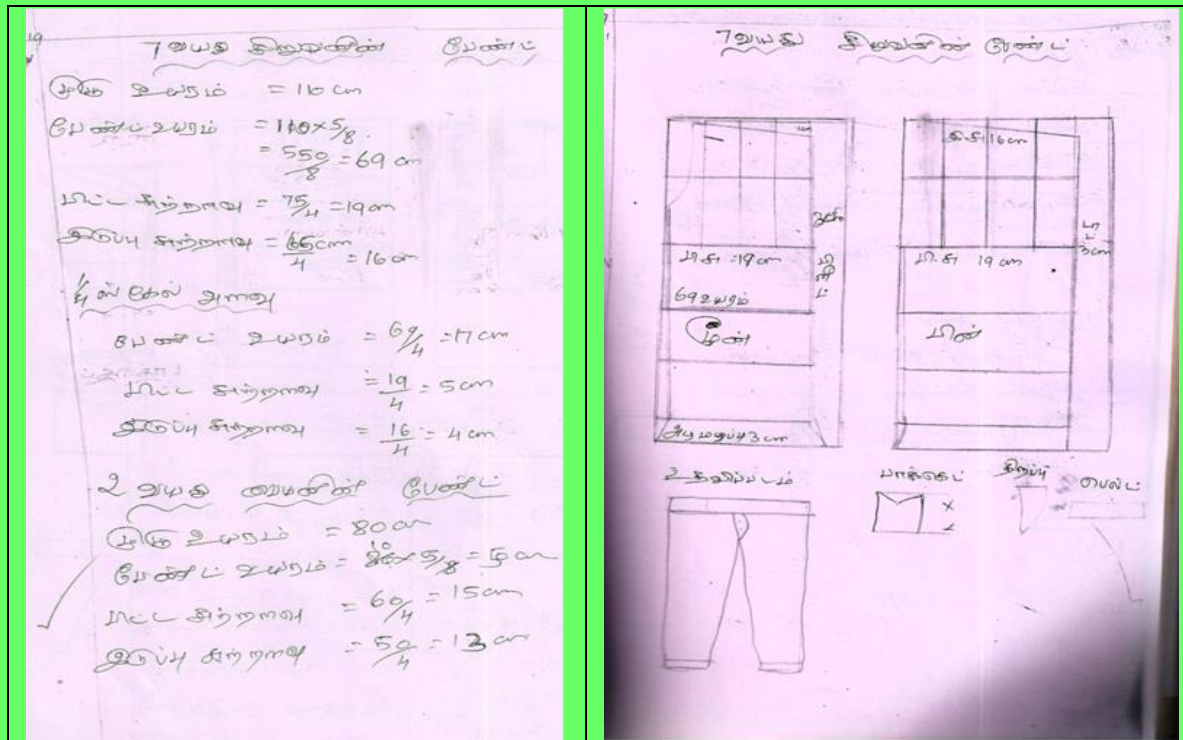 19
7 வயது சிறுவனின் பேண்ட்
முழு உயரம் = 110 cm
பேண்ட் உயரம் = 110 × 5/8
= 550/8 = 69 cm
பிட்ட சுற்றளவு = 75/4 = 19 cm
இடுப்பு சுற்றளவு = 65cm/4 = 16 cm
1/4 ஸ்கேல் அளவு
பேண்ட் உயரம் = 69/4 = 17 cm
பிட்ட சுற்றளவு = 19/4 = 5 cm
இடுப்பு சுற்றளவு = 16/4 = 4 cm
2 வயது பையனின் பேண்ட்
முழு உயரம் = 80 cm
பேண்ட் உயரம் = 80 × 5/8 = 50 cm
பிட்ட சுற்றளவு = 60/4 = 15 cm
இடுப்பு சுற்றளவு = 50/4 = 13 cm
7 வயது சிறுவனின் பேண்ட்
இ.சு 16 cm
பி.சு = 19 cm
69 உயரம்
முன்
அடி மடிப்பு 3 cm
பி.சு 19 cm
3 cm
பின்
உதவிப்படம்
பாக்கெட்
பெல்ட்